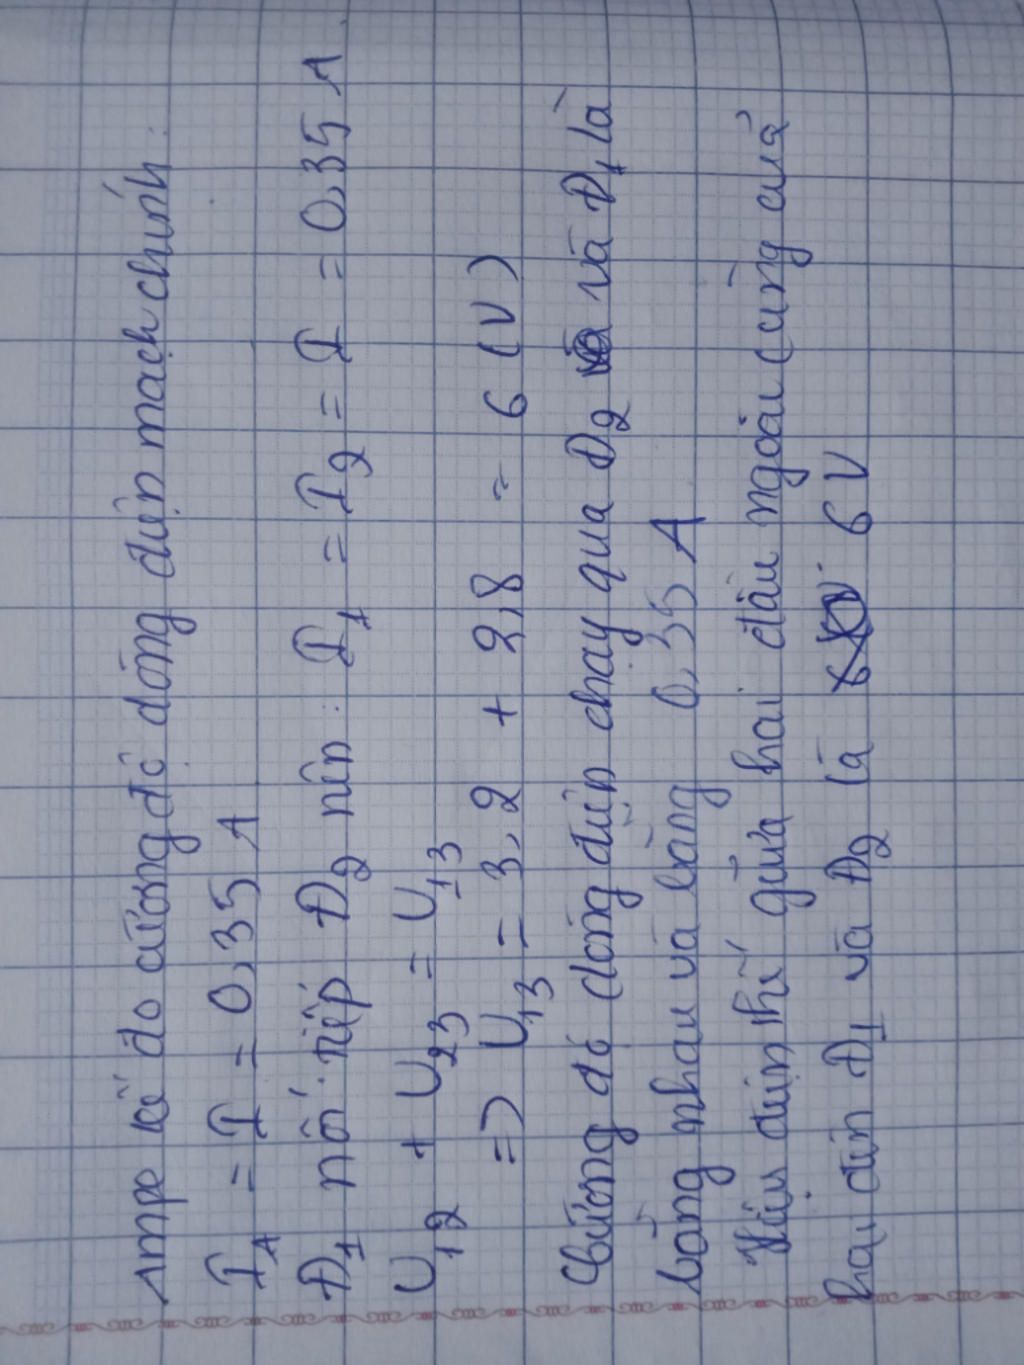 Ampe kế đo cường độ dòng điện mạch chính:
I_A = I = 0,35 A
Đ_1 nối tiếp Đ_2 nên: I_1 = I_2 = I = 0,35 A
U_12 + U_23 = U_13
=> U_13 = 3,2 + 2,8 = 6 (V)
Cường độ dòng điện chạy qua Đ_2 và Đ_1 là
bằng nhau và bằng 0,35 A
Hiệu điện thế giữa hai đầu ngoài cùng của
hai đèn Đ_1 và Đ_2 là 6 V